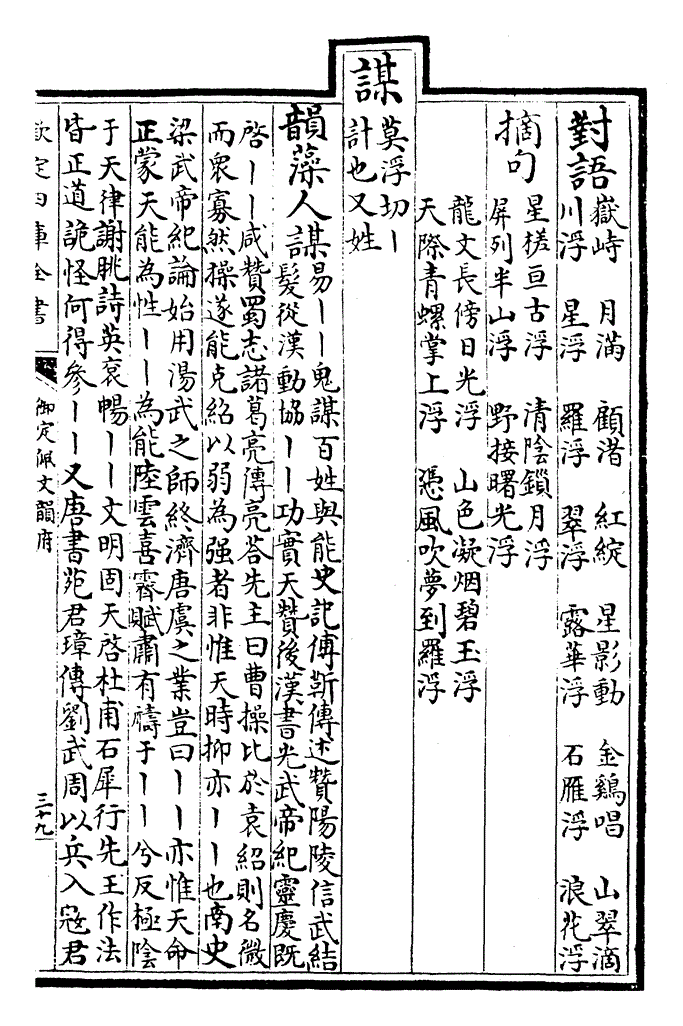 對語
嶽峙 月滿 顧渚 紅綻 星影動 金鷄唱 山翠滴
川浮 星浮 羅浮 翠浮 露華浮 石雁浮 浪花浮
摘句
星槎亘古浮 清陰鎖月浮
屏列半山浮 野接曙光浮
龍文長傍日光浮 山色凝烟碧玉浮
天際青螺掌上浮 憑風吹夢到羅浮
謀
莫浮切丨
計也又姓
韻藻人謀
易丨丨鬼謀百姓與能史記傅靳傳述贊陽陵信武結
髮從漢動協丨丨功實天贊後漢書光武帝紀靈慶既
啓丨丨咸贊蜀志諸葛亮傳亮荅先主曰曹操比於袁紹則名微
而衆寡然操遂能克紹以弱為强者非惟天時抑亦丨丨也南史
梁武帝紀論始用湯武之師終濟唐虞之業豈曰丨丨亦惟天命
正蒙天能為性丨丨為能陸雲喜霽賦肅有禱于丨丨兮反極陰
于天律謝朓詩英衮暢丨丨文明固天啓杜甫石犀行先王作法
皆正道詭怪何得參丨丨又唐書苑君璋傳劉武周以兵入寇君
欽定四庫全書
御定佩文韻府
三十九